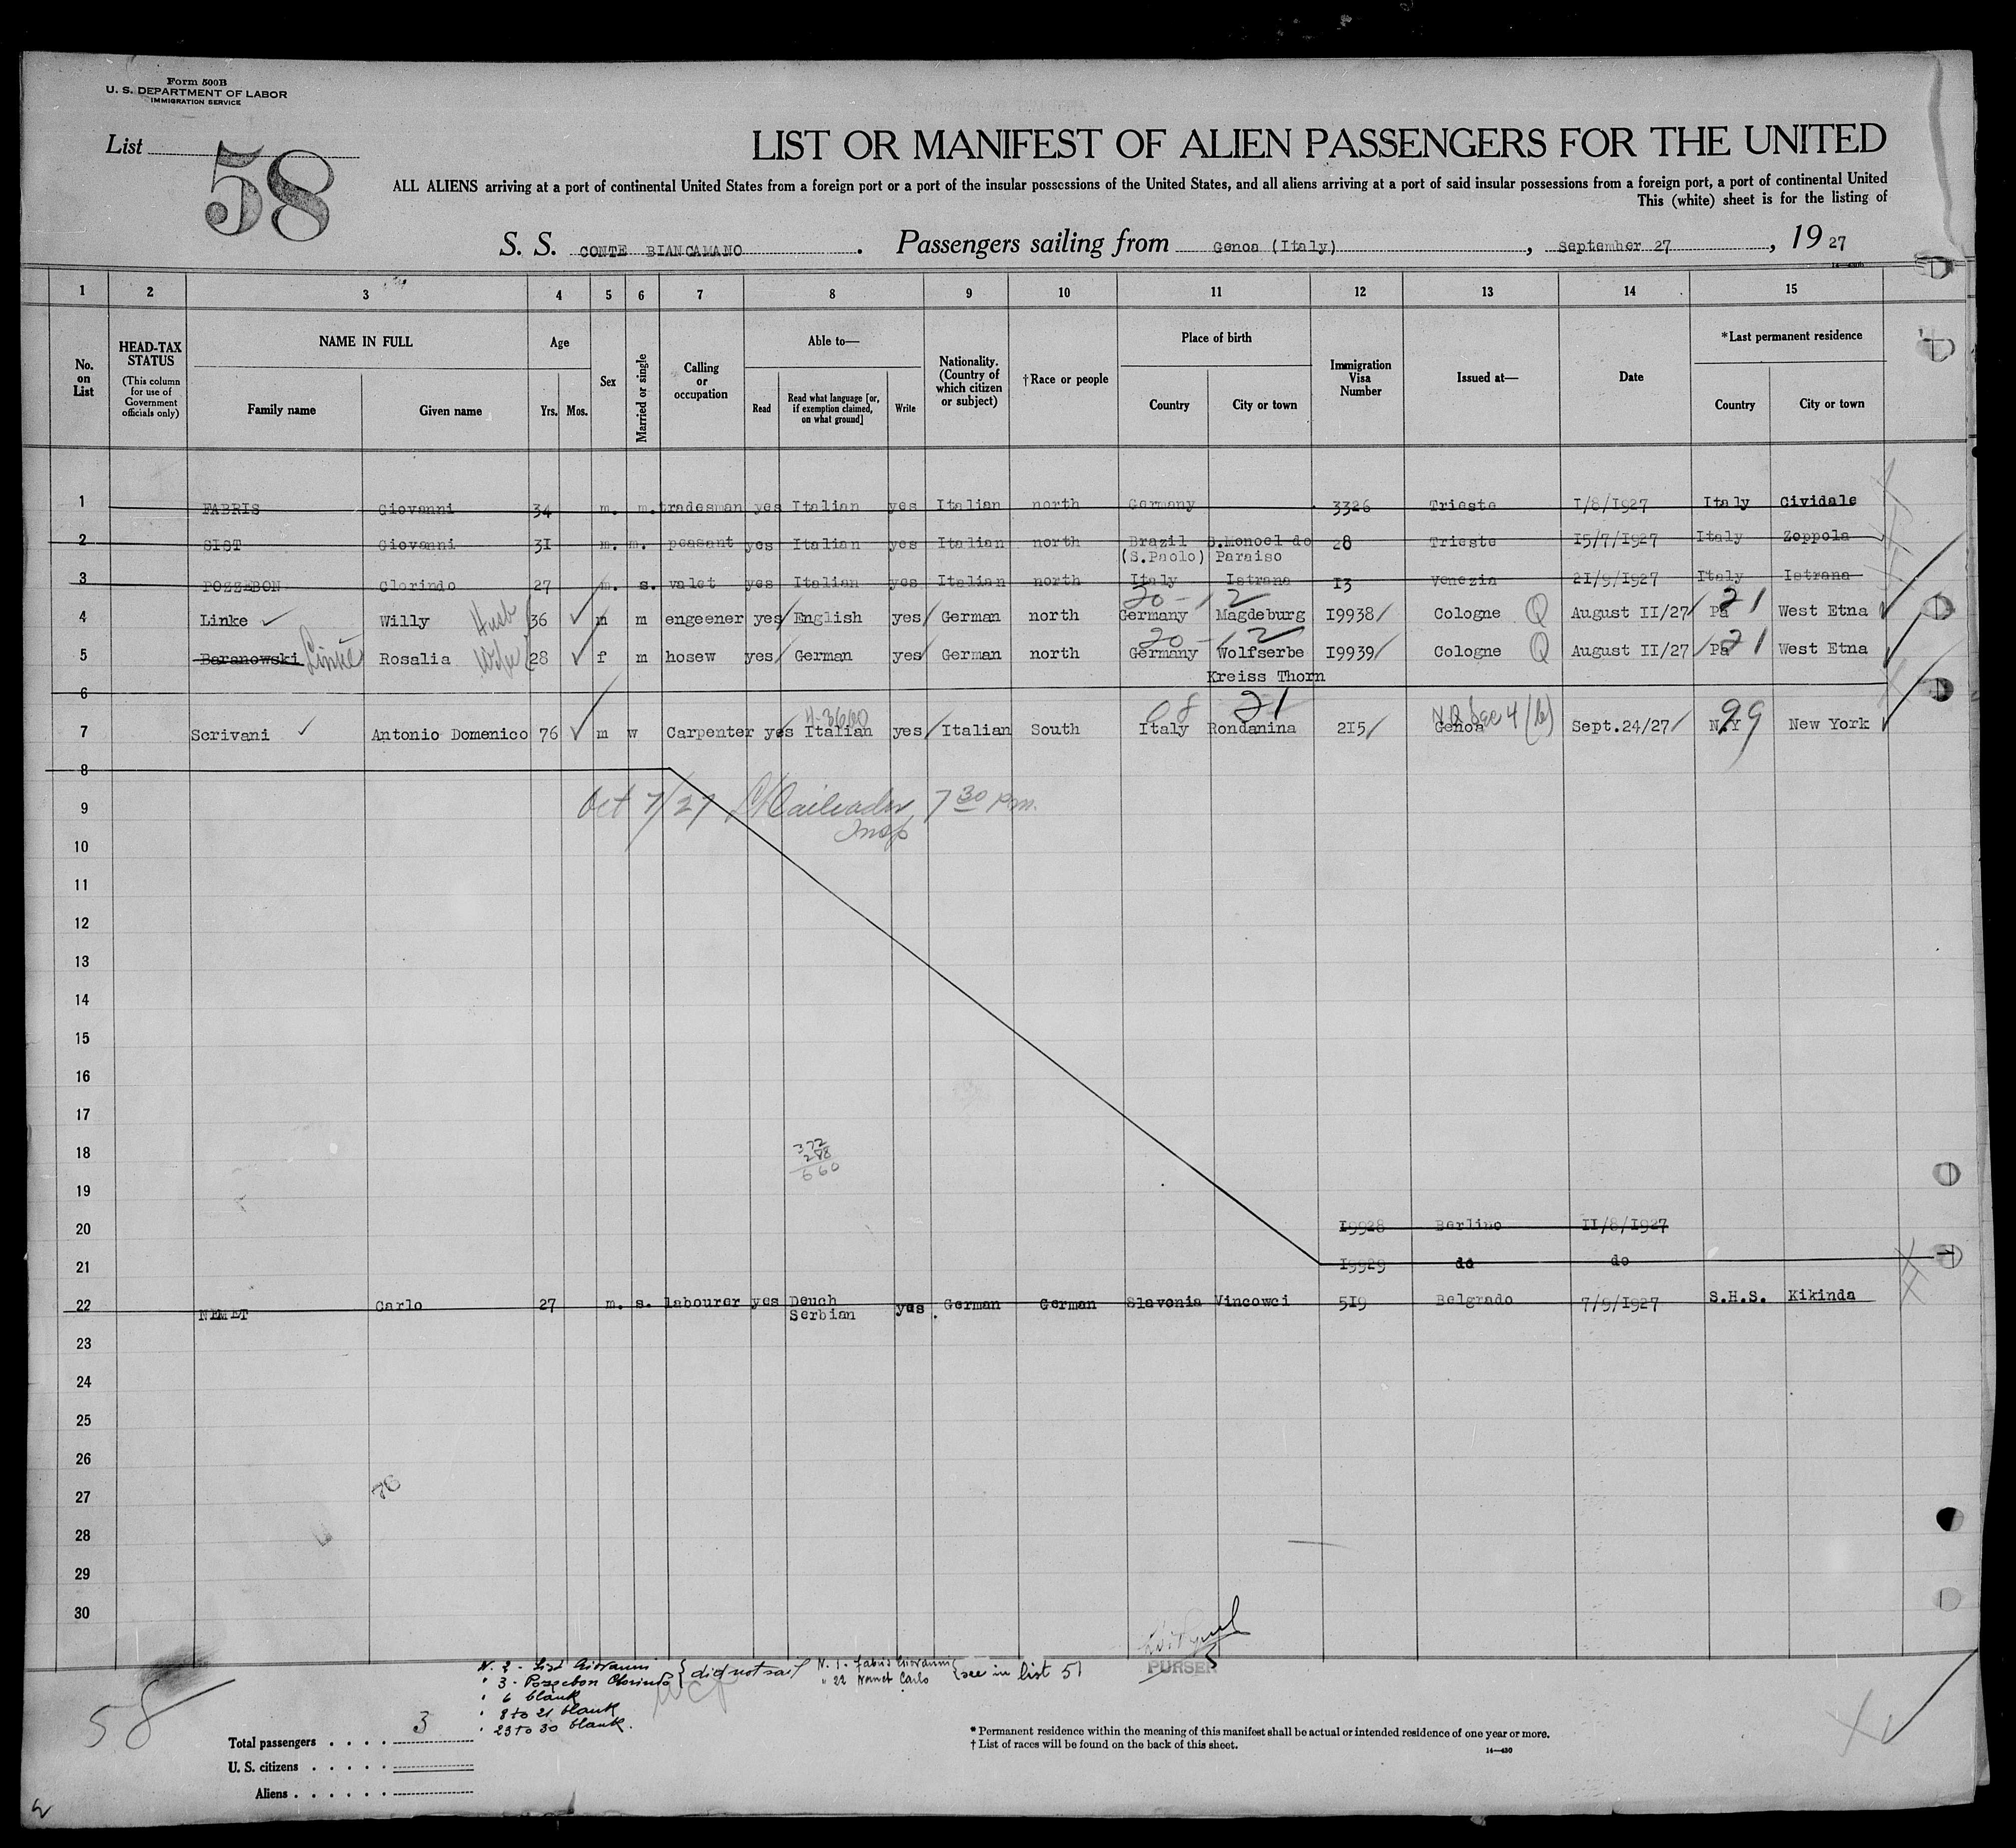 Form 500B
U. S. DEPARTMENT OF LABOR
IMMIGRATION SERVICE
List 58
LIST OR MANIFEST OF ALIEN PASSENGERS FOR THE UNITED
ALL ALIENS arriving at a port of continental United States from a foreign port or a port of the insular possessions of the United States, and all aliens arriving at a port of said insular possessions from a foreign port, a port of continental United
This (white) sheet is for the listing of
S. S. CONTE BIANCAMANO. Passengers sailing from Genoa (Italy), September 27, 1927
1 2 3 4 5 6 7 8 9 10 11 12 13 14 15
No. on List
HEAD-TAX STATUS
(This column for use of Government officials only)
NAME IN FULL
Family name Given name
Age
Yrs. Mos.
Sex
Married or single
Calling or occupation
Able to—
Read Read what language [or, if exemption claimed, on what ground] Write
Nationality. (Country of which citizen or subject)
†Race or people
Place of birth
Country City or town
Immigration Visa Number
Issued at—
Date
*Last permanent residence
Country City or town
1 FABRIS Giovanni 34 m. m. tradesman yes Italian yes Italian north Germany 3326 Trieste I/8/I927 Italy Cividale
2 SIST Giovanni 3I m. m. peasant yes Italian yes Italian north Brazil S.Monoel do 28 Trieste I5/7/I927 Italy Zoppola
(S.Paolo) Paraiso
3 POZZEBON Clorindo 27 m. s. valet yes Italian yes Italian north Italy Istrana I3 Venezia 2I/9/I927 Italy Istrana
20 - 12 21
4 Linke Willy Husb 36 m m engeener yes English yes German north Germany Magdeburg I9938 Cologne Q August II/27 Pa West Etna
20 - 12 21
5 Baranowski Linke Rosalia Wife 28 f m hosew yes German yes German north Germany Wolfserbe I9939 Cologne Q August II/27 Pa West Etna
Kreiss Thorn
6
08 21 99
7 Scrivani Antonio Domenico 76 m w Carpenter yes Italian yes Italian South Italy Rondanina 2I5 Genoa Sept.24/27 N.Y New York
8
Oct 7/27 7 30 P.m.
Insp
9
10
11
12
13
14
15
16
17
372
288
660
18
19
20 I9928 Berlino II/8/I927
21 I9929 do do
22 NEMET Carlo 27 m. s. labourer yes Deuch yes. German German Slavonia Vincowci 5I9 Belgrado 7/9/I927 S.H.S. Kikinda
Serbian
23
24
25
26
27
76
28
29
30
PURSER
N. 2 - Sist Giovanni
" 3 - Pozzebon Clorindo } did not sail
" 6 blank
" 8 to 21 blank
" 23 to 30 blank.
N. 1 - Fabris Giovanni
" 22 Nemet Carlo } see in list 51
58
Total passengers . . . . 3
U. S. citizens . . . . .
Aliens . . . . . .
* Permanent residence within the meaning of this manifest shall be actual or intended residence of one year or more.
† List of races will be found on the back of this sheet.
14—430